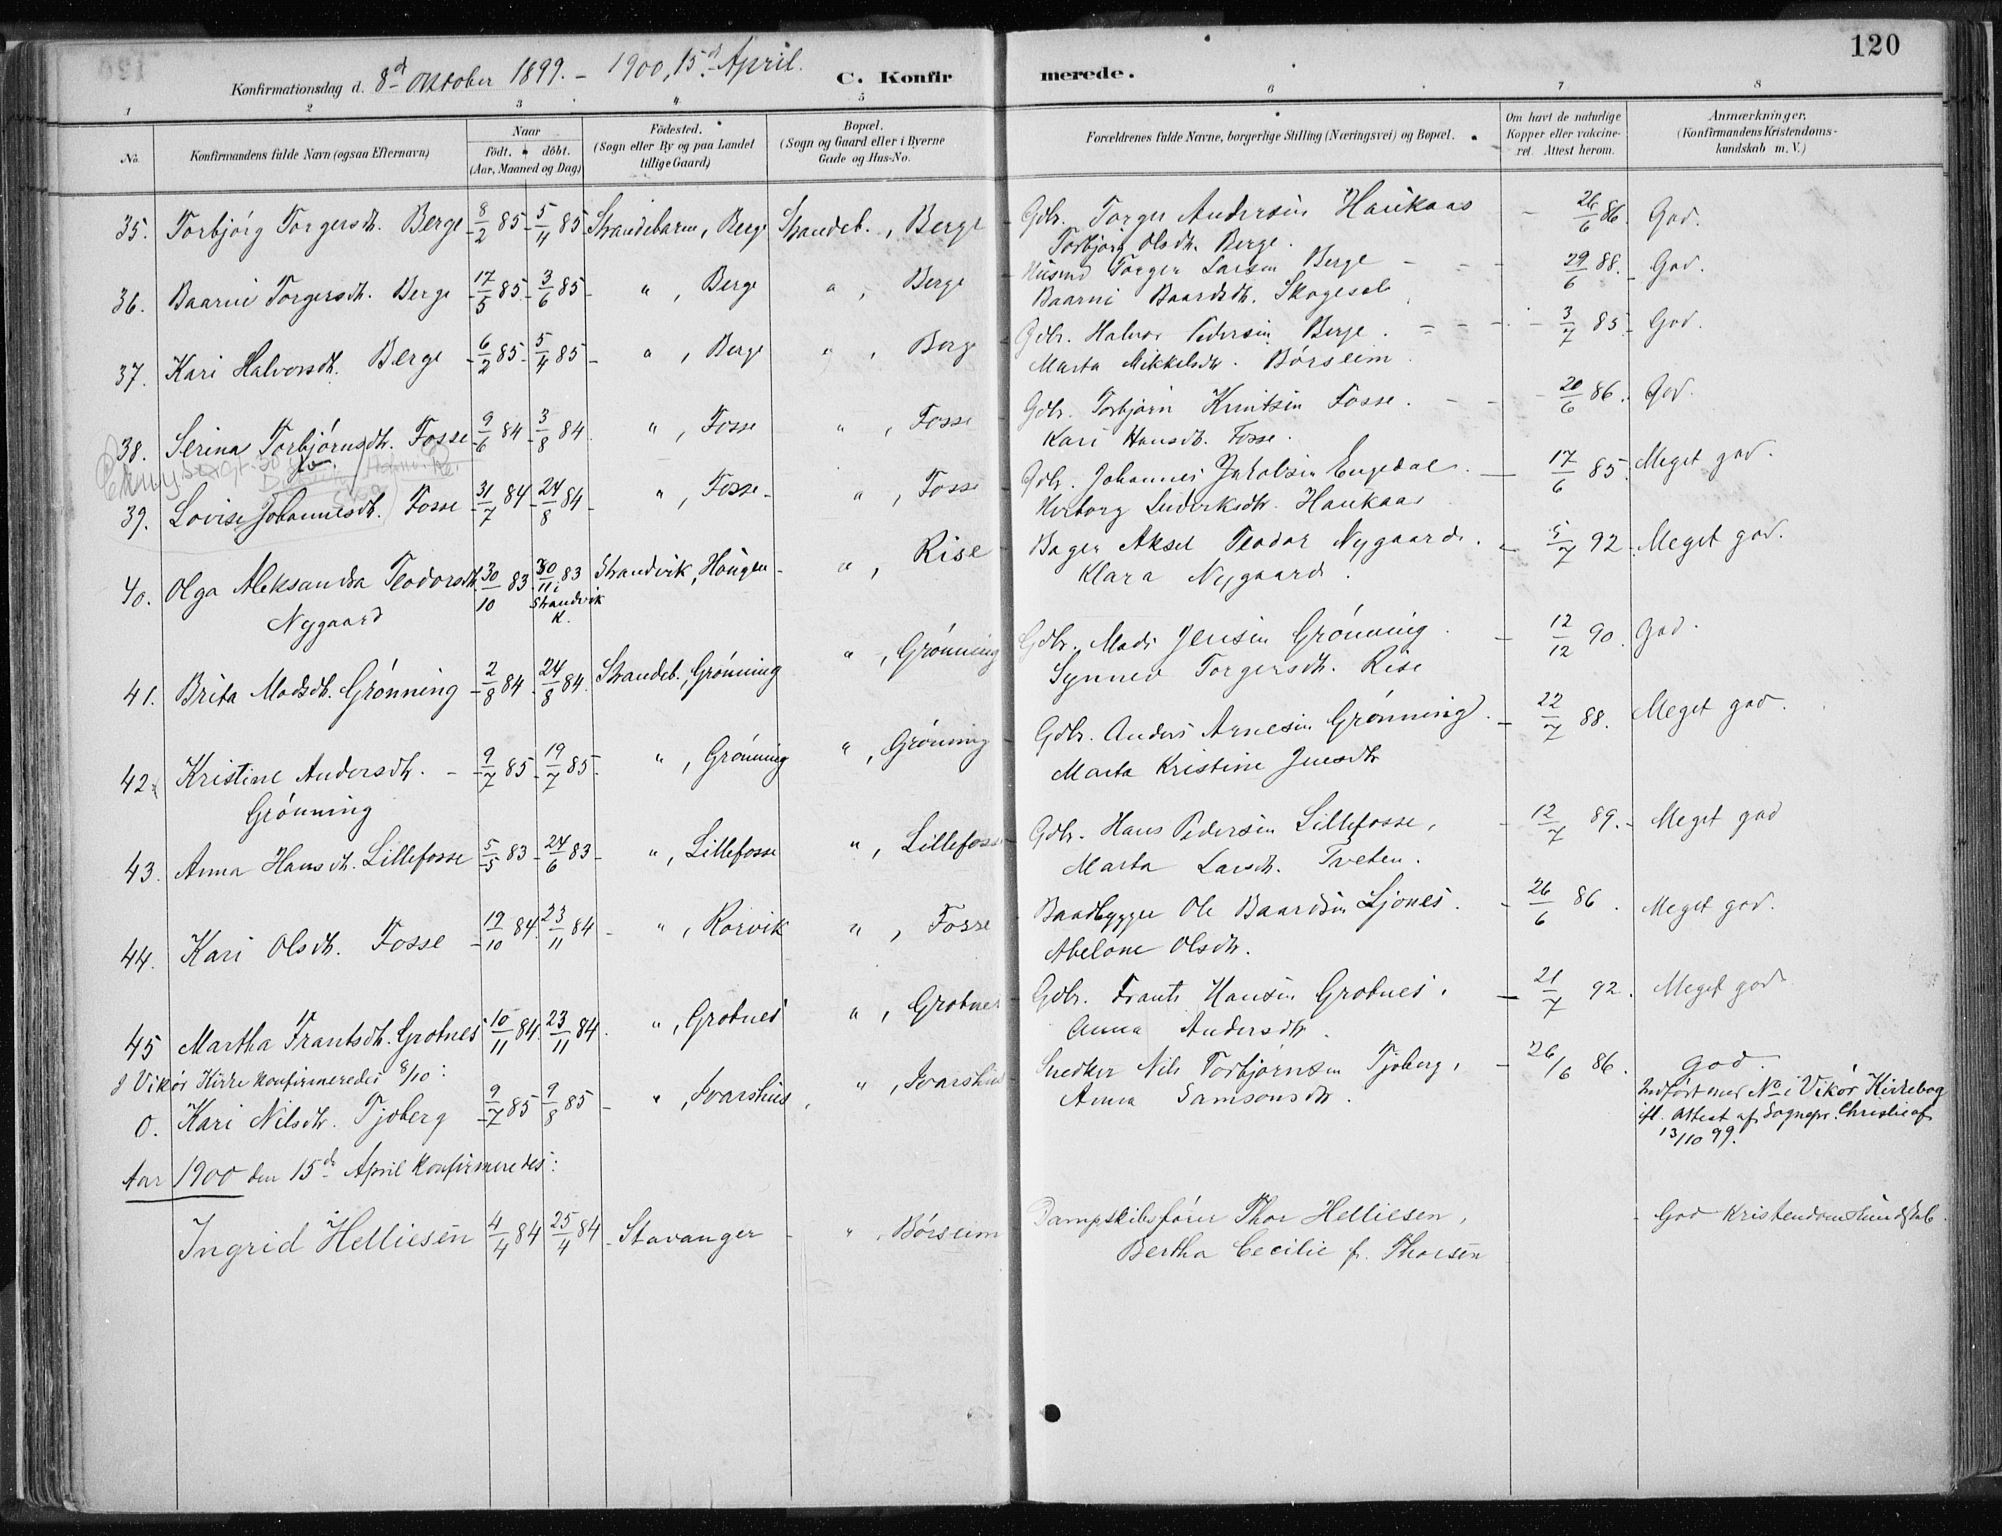 120
Konfirmationsdag d. 8de Oktober 1899. – 1900, 15de April.
C. Konfirmerede.
1 2 3 4 5 6 7 8
No. Konfirmandens fulde Navn (ogsaa Efternavn) Naar født. døbt. (Aar, Maaned og Dag) Fødested. (Sogn eller By og paa Landet tillige Gaard) Bopæl. (Sogn og Gaard eller i Byerne Gade og Hus-No. Forældrenes fulde Navne, borgerlige Stilling (Næringsvei) og Bopæl. Om havt de naturlige Kopper eller vakcineret. Attest herom. Anmærkninger. (Konfirmandens Kristendomskundskab m. V.)
35. Torbjørg Torgersdt. Berge 8/2 85 5/4 85 Strandebarm, Berge Strandeb., Berge Gdbr. Torger Andersen Haukaas 26/6 86. God.
Torbjørg Olsdt. Berge.
36. Baarni Torgersdt. Berge 17/5 85 3/6 85 " , Berge " , Berge Husmd Torger Larsen Berge 29/6 88. God.
Baarni Baardsdt.
37. Kari Halvorsdt. Berge 6/2 85 5/4 85 " , Berge " , Berge Gdbr. Halvor Pedersen Berge. 3/7 85. God.
Marta Mikkelsdtr. Børseim
38. Serina Torbjørnsdt. Fosse 9/6 84 3/8 84 " , Fosse " , Fosse Gdbr. Torbjørn Knutsen Fosse. 20/6 86. God.
Kari Hansdt. Fosse.
39. Lovise Johannesdt. Fosse 31/7 84 24/8 84 " , Fosse " , Fosse Gdbr. Johannes Jakobsen Engedal. 17/6 85. Meget god.
Luderiksdtr. Haukaas
40. Olga Aleksandra Teodorsdt. 30/10 83 30/11 83 Strandvik, Haugen " , Rise Bager Aksel Teodor Nygaard. 5/7 92. Meget god.
Nygaard i Strandvik K. Klara Nygaard.
41. Brita Madsdt. Grønning 2/8 84 24/8 84. Strandeb., Grønning " , Grønning Gdbr. Mads Jensen Grønning. 12/12 90. God.
Synneva Torgersdt. Rise
42. Kristine Andersdt. 9/7 85 19/7 85. " , Grønning " , Grønning Gdbr. Anders Arnesen Grønning. 22/7 88. Meget god.
Grønning Marta Kristine Jensdtr
43. Anna Hansdt. Lillefosse 5/5 83 24/6 83 " , Lillefosse " , Lillefosse Gdbr. Hans Pedersen Lillefosse, 12/7 89. Meget god
Marta Larsdt. Tveten.
44. Kari Olsdt. Fosse 19/10 84 23/11 84 " , Rørvik " , Fosse Baadbygger Ole Baardsen Ljones. 26/6 86. Meget god.
Abelone Olsdtr.
45 Martha Frantsdt. Grotnes 10/11 84. 23/11 84. " , Grotnes " , Grotnes Gdbr. Frants Hansen Grotnes. 21/7 92. Meget god.
Anna Andersdtr.
I Vikør Kirke konfirmeredes 8/10:
0. Kari Nilsdtr. Tjoberg 9/7 85 9/8 85 " , Ivarshus " , Ivarshus Snedker Nils Torbjørnsen Tjoberg, 26/6 86. God.
Anna Samsonsdtr. Indført med No i Vikør Kirkebog
ifl. Attest af Sognepr. Christie af
13/10 99.
Aar 1900 den 15de April konfirmeredes:
Ingrid Helliesen 4/4 84 25/4 84 Stavanger " , Børseim Dampskibsfører Thor Helliesen, God Kristendomskundskab.
Bertha Cecilie f. Thorsen